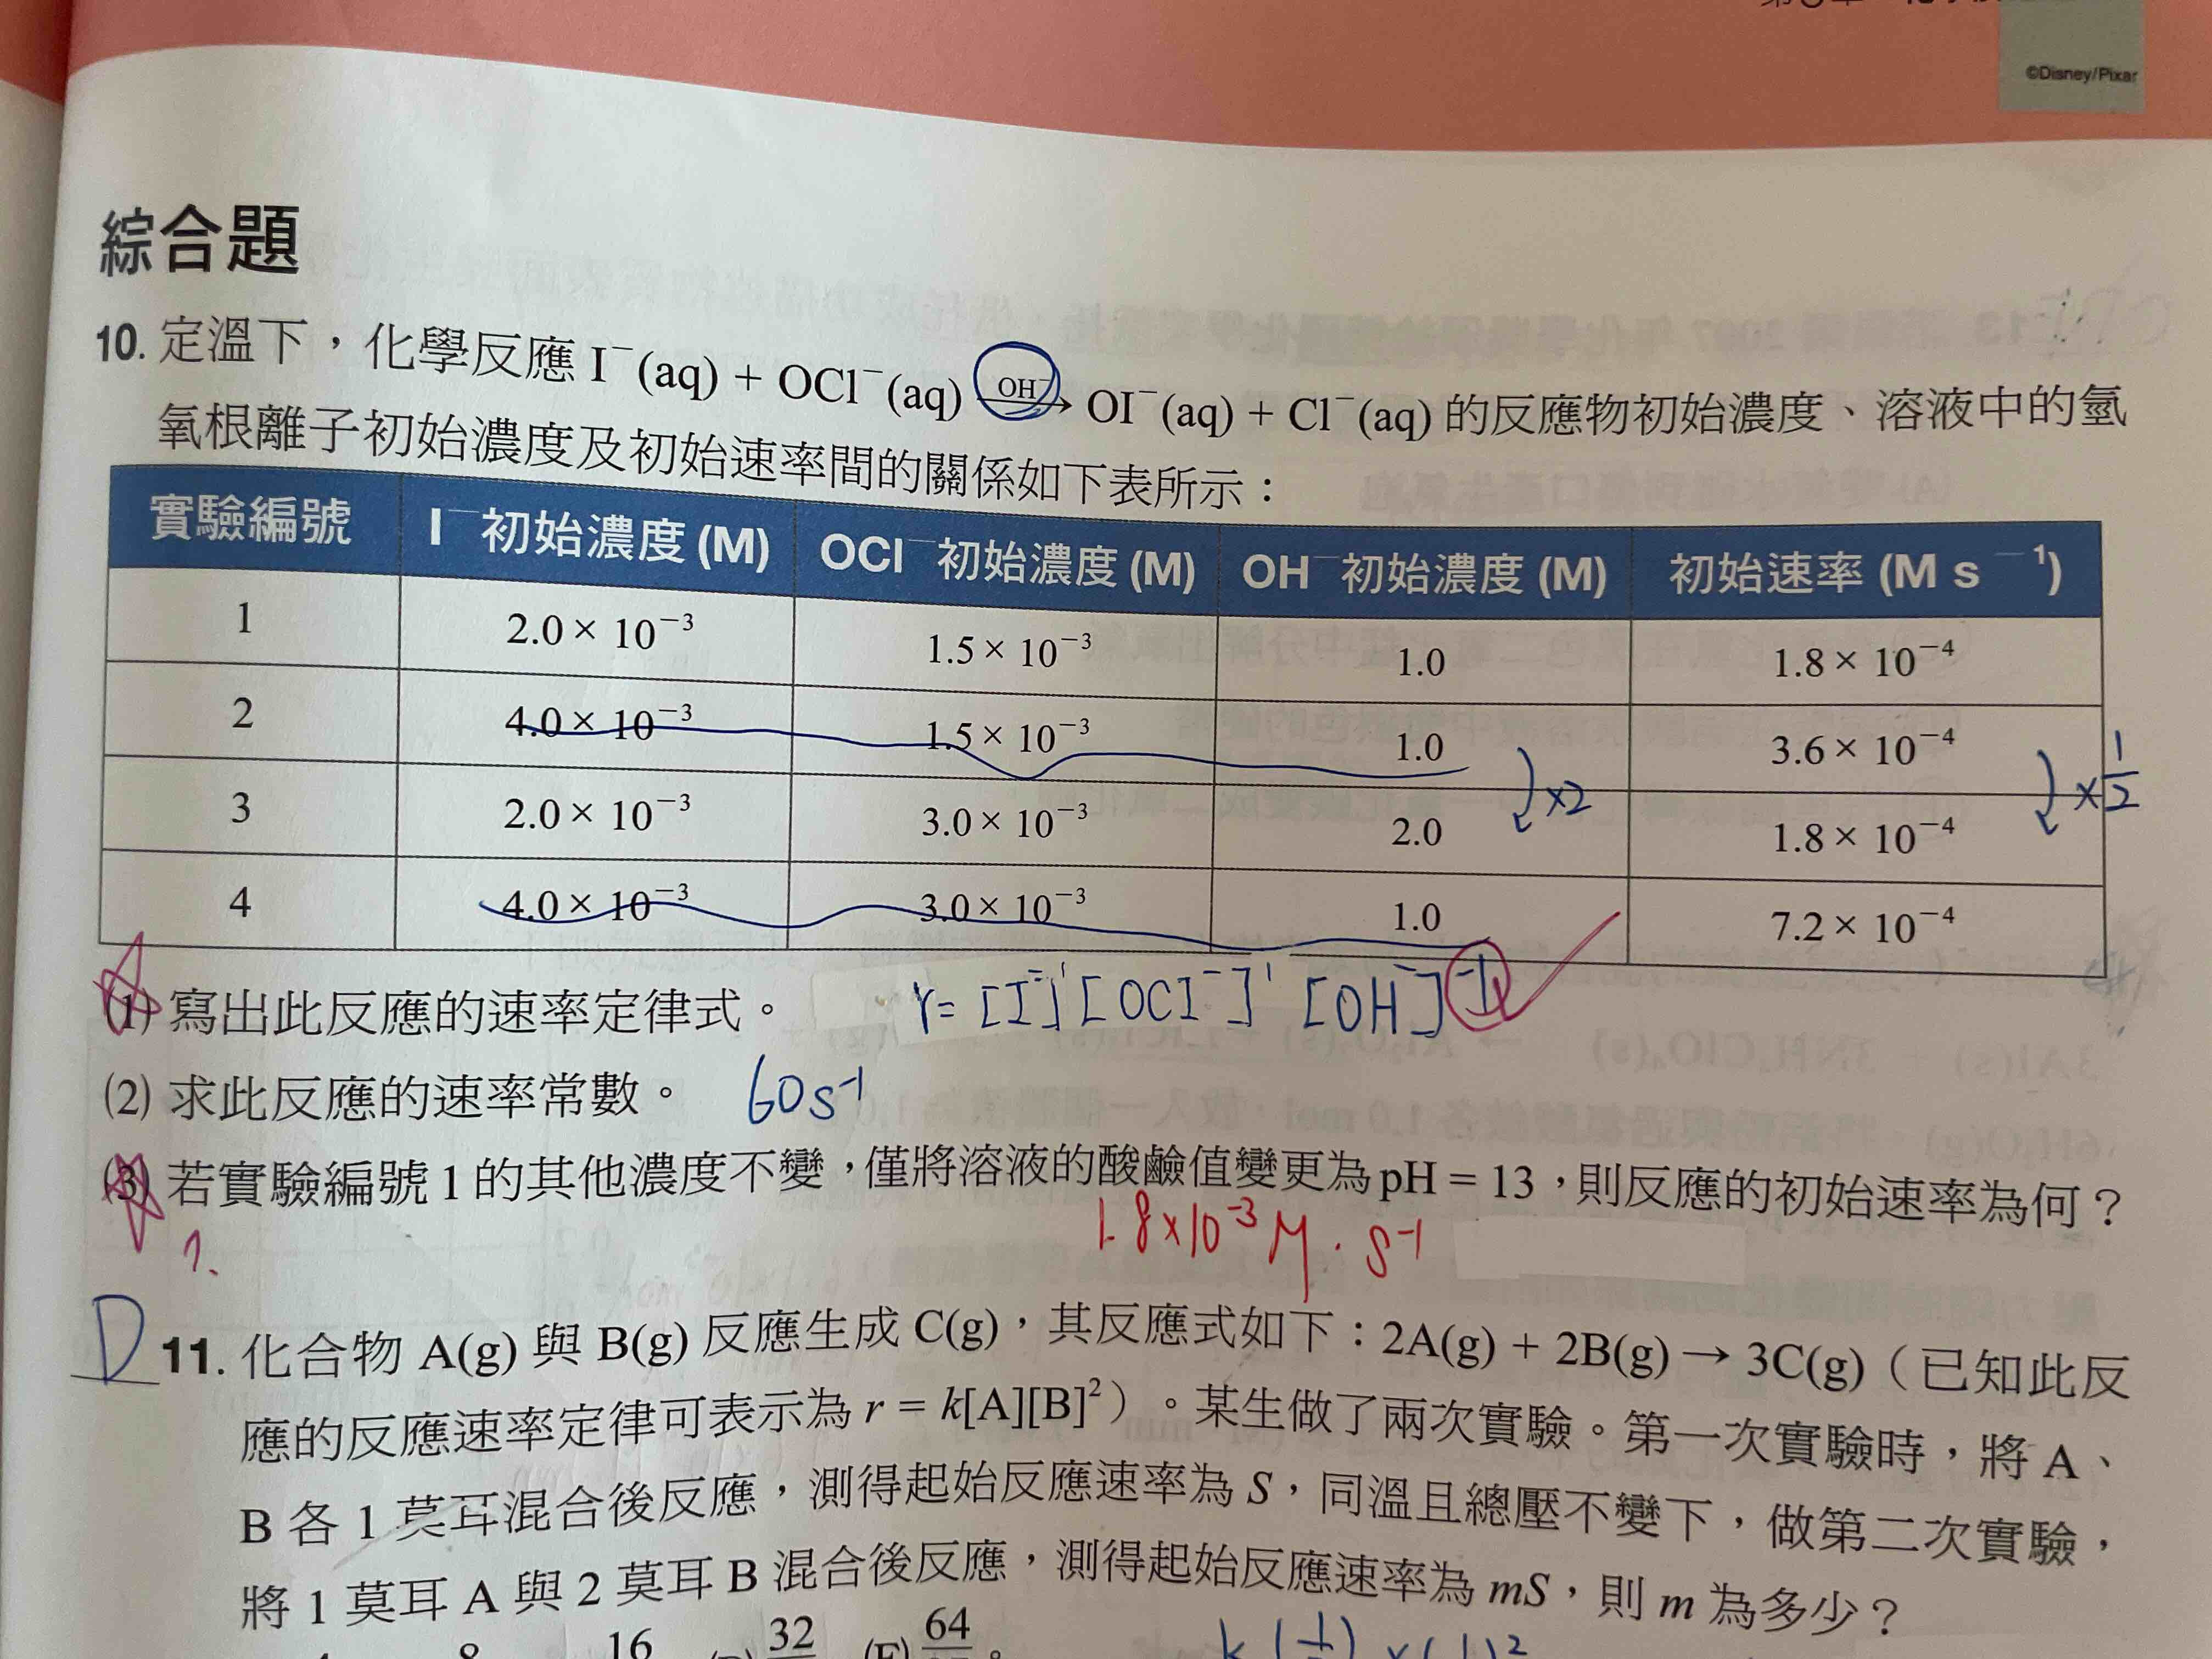 ©Disney/Pixar
綜合題
10. 定溫下，化學反應 I⁻(aq) + OCl⁻(aq) OH⁻→ OI⁻(aq) + Cl⁻(aq) 的反應物初始濃度、溶液中的氫
氧根離子初始濃度及初始速率間的關係如下表所示：
實驗編號 I⁻初始濃度 (M) OCl⁻初始濃度 (M) OH⁻初始濃度 (M) 初始速率 (M s⁻¹)
1 2.0 × 10⁻³ 1.5 × 10⁻³ 1.0 1.8 × 10⁻⁴
2 4.0 × 10⁻³ 1.5 × 10⁻³ 1.0 3.6 × 10⁻⁴
×2 ×1/2
3 2.0 × 10⁻³ 3.0 × 10⁻³ 2.0 1.8 × 10⁻⁴
4 4.0 × 10⁻³ 3.0 × 10⁻³ 1.0 7.2 × 10⁻⁴
(1) 寫出此反應的速率定律式。 r = [I⁻]¹[OCl⁻]¹[OH⁻]⁻¹
(2) 求此反應的速率常數。 60 s⁻¹
(3) 若實驗編號 1 的其他濃度不變，僅將溶液的酸鹼值變更為 pH = 13，則反應的初始速率為何？
?. 1.8×10⁻³ M·s⁻¹
D 11. 化合物 A(g) 與 B(g) 反應生成 C(g)，其反應式如下：2A(g) + 2B(g) → 3C(g)（已知此反
應的反應速率定律可表示為 r = k[A][B]²）。某生做了兩次實驗。第一次實驗時，將 A、
B 各 1 莫耳混合後反應，測得起始反應速率為 S，同溫且總壓不變下，做第二次實驗，
將 1 莫耳 A 與 2 莫耳 B 混合後反應，測得起始反應速率為 mS，則 m 為多少？
16 32 (E) 64